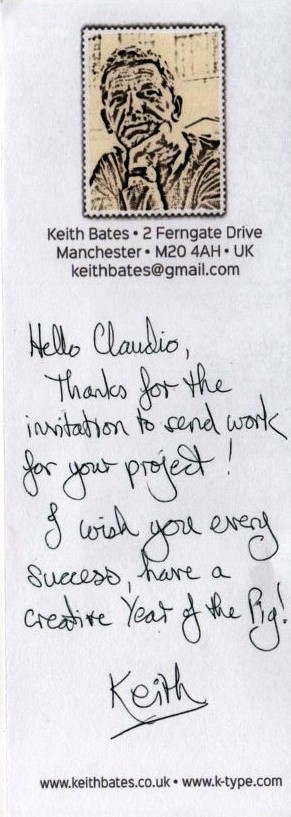 Keith Bates • 2 Ferngate Drive
Manchester • M20 4AH • UK
keithbates@gmail.com
Hello Claudio,
Thanks for the
invitation to send work
for your project!
I wish you every
success, have a
creative Year of the Pig!
Keith
www.keithbates.co.uk • www.k-type.com